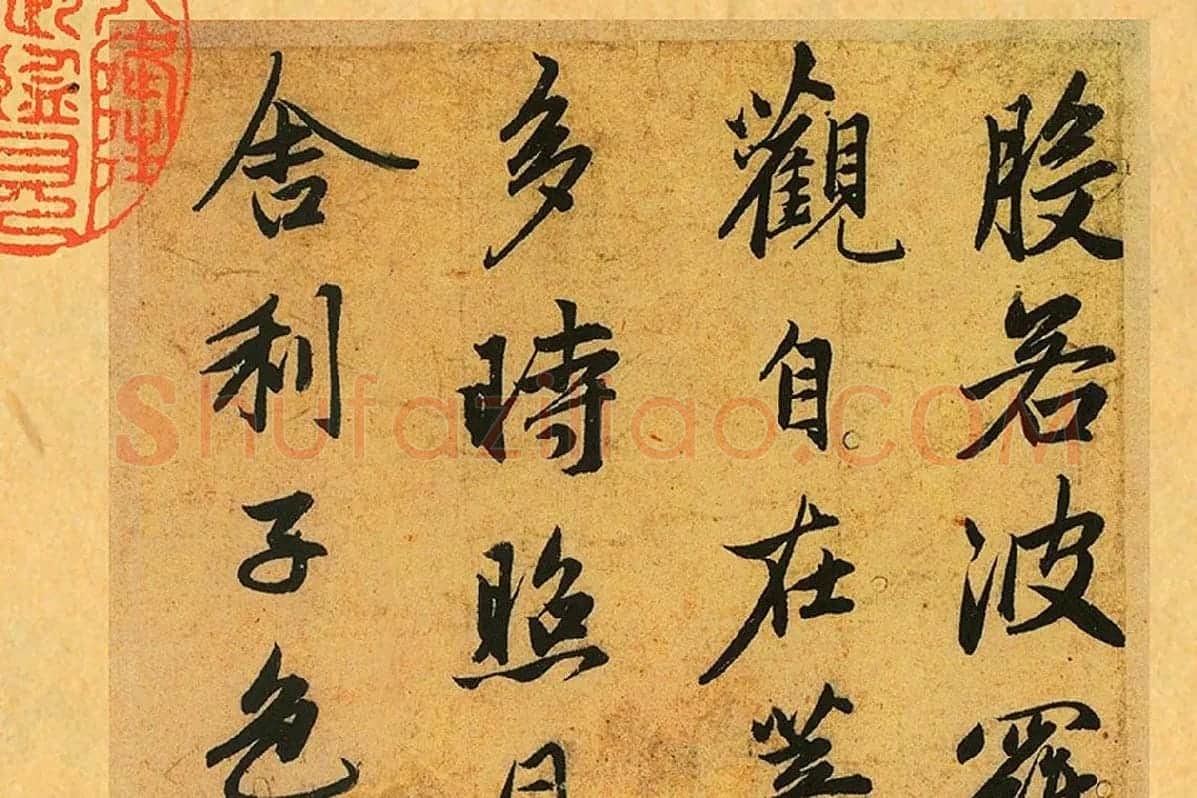 般若波羅
觀自在菩
多時照
舍利子色
Shufaziliao.COM